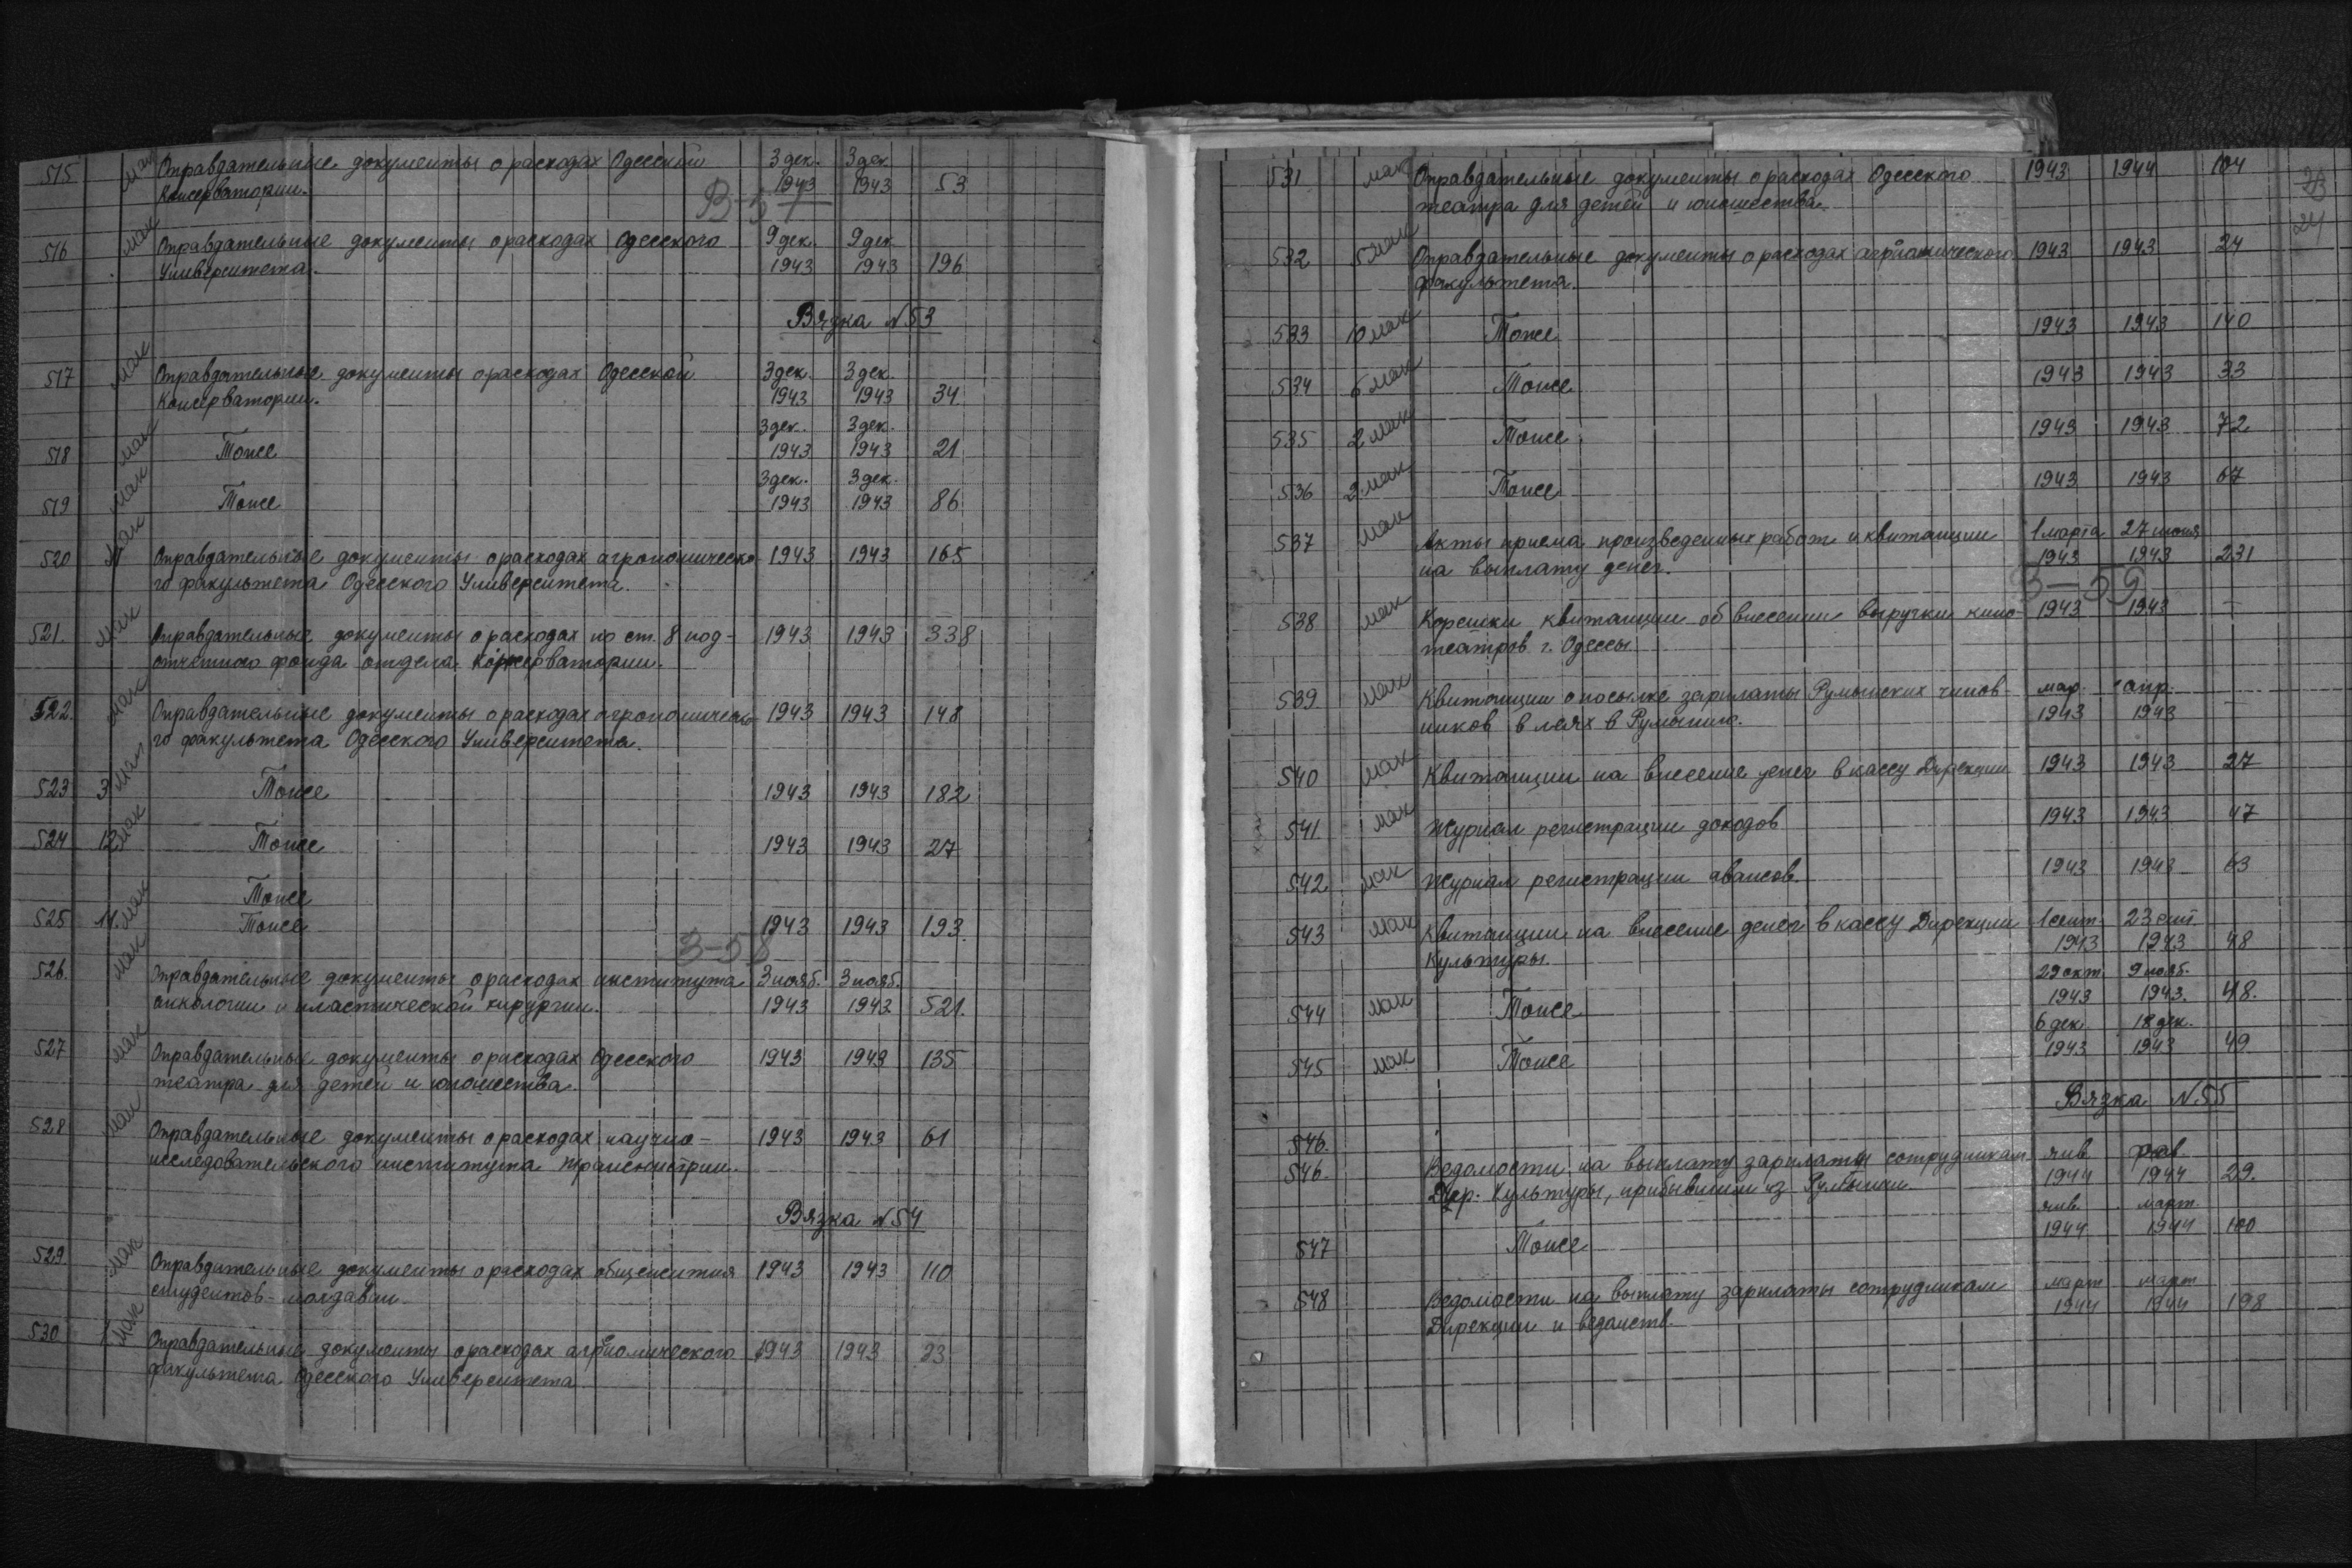 515 мак Оправдательные документы о расходах Одесской 3 дек. 3 дек
Консерватории. 1943 1943 53
В-57
516 мак Оправдательные документы о расходах Одесского 9 дек. 9 дек
Университета. 1943 1943 196
Вязка N 53
517 мак Оправдательные документы о расходах Одесской 3 дек. 3 дек
Консерватории. 1943 1943 34
3 дек. 3 дек.
518 мак Тоже 1943 1943 21
3 дек. 3 дек.
519 мак Тоже 1943 1943 86
520 мак Оправдательные документы о расходах агрономическо- 1943 1943 165
го факультета Одесского Университета.
521. мак Оправдательные документы о расходах по ст. 8 под- 1943 1943 338
отчетного фонда отдела консерватории.
522. мак Оправдательные документы о расходах агрономическо- 1943 1943 148
го факультета Одесского Университета.
523 3 мак Тоже 1943 1943 182
524 12 мак Тоже 1943 1943 217
Тоже
525 11. мак Тоже 1943 1943 193.
В-58
526. мак Оправдательные документы о расходах института 3 нояб. 3 нояб.
онкологии и пластической хирургии. 1943 1943 521.
527 мак Оправдательные документы о расходах Одесского 1943 1943 135
театра для детей и юношества.
528 мак Оправдательные документы о расходах научно- 1943 1943 61
исследовательского института Транснистрии.
Вязка N 54
529. мак Оправдательные документы о расходах общежития 1943 1943 110
студентов-молдаван.
530 мак Оправдательные документы о расходах агрономического 1943 1943 23
факультета Одесского Университета
23
24
531 мак Оправдательные документы о расходах Одесского 1943 1944 104
театра для детей и юношества.
532 5 мак Оправдательные документы о расходах агрономического 1943 1943 24
факультета.
533 10 мак Тоже 1943 1943 140
534 6 мак Тоже 1943 1943 33
535 2 мак Тоже 1943 1943 72
536 2 мак Тоже 1943 1943 67
537 мак Акты приема произведенных работ и квитанции 1 марта 27 июня
на выплату денег. 1943 1943 231
В-59
538 мак Корешки квитанции об внесении выручки кино- 1943 1943 -
театров г. Одессы
539. мак Квитанции о посылке зарплаты Румынских чинов- мар. апр.
ников в леях в Румынию. 1943 1943 -
540 мак Квитанции на внесение денег в кассу Дирекции 1943 1943 27
541. мак Журнал регистрации доходов 1943 1943 47
542. мак Журнал регистрации авансов. 1943 1943 63
543 мак Квитанции на внесение денег в кассу Дирекции 1 сент. 23 сент.
Культуры. 1943 1943 48
29 окт. 9 нояб.
544 мак Тоже 1943 1943. 48.
6 дек. 18 дек.
545 мак Тоже 1943 1943 49
Вязка N. 55
546.
546. Ведомости на выплату зарплаты сотрудникам янв. фев.
Дир. Культуры, прибывшим из Румынии 1944 1944 29.
янв. март.
547 Тоже 1944 1944 100
548 Ведомости на выплату зарплаты сотрудникам март март
Дирекции и ведомств. 1944 1944 198